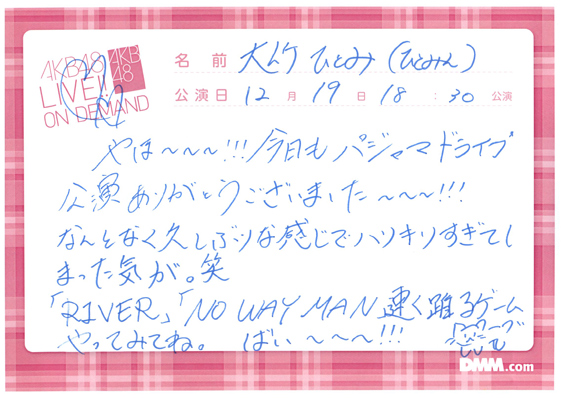 AKB48
LIVE!!
ON DEMAND
AKB
48
名前 大竹ひとみ(ひとみん)
公演日 12月19日 18:30 公演
やほ〜〜〜!!!今日もパジャマドライブ
公演ありがとうございました〜〜〜!!!
なんとなく久しぶりな感じでハリキリすぎてし
まった気が。笑
「RIVER」「NO WAY MAN」速く踊るゲーム
やってみてね。 ばい〜〜〜!!!
DMM.com